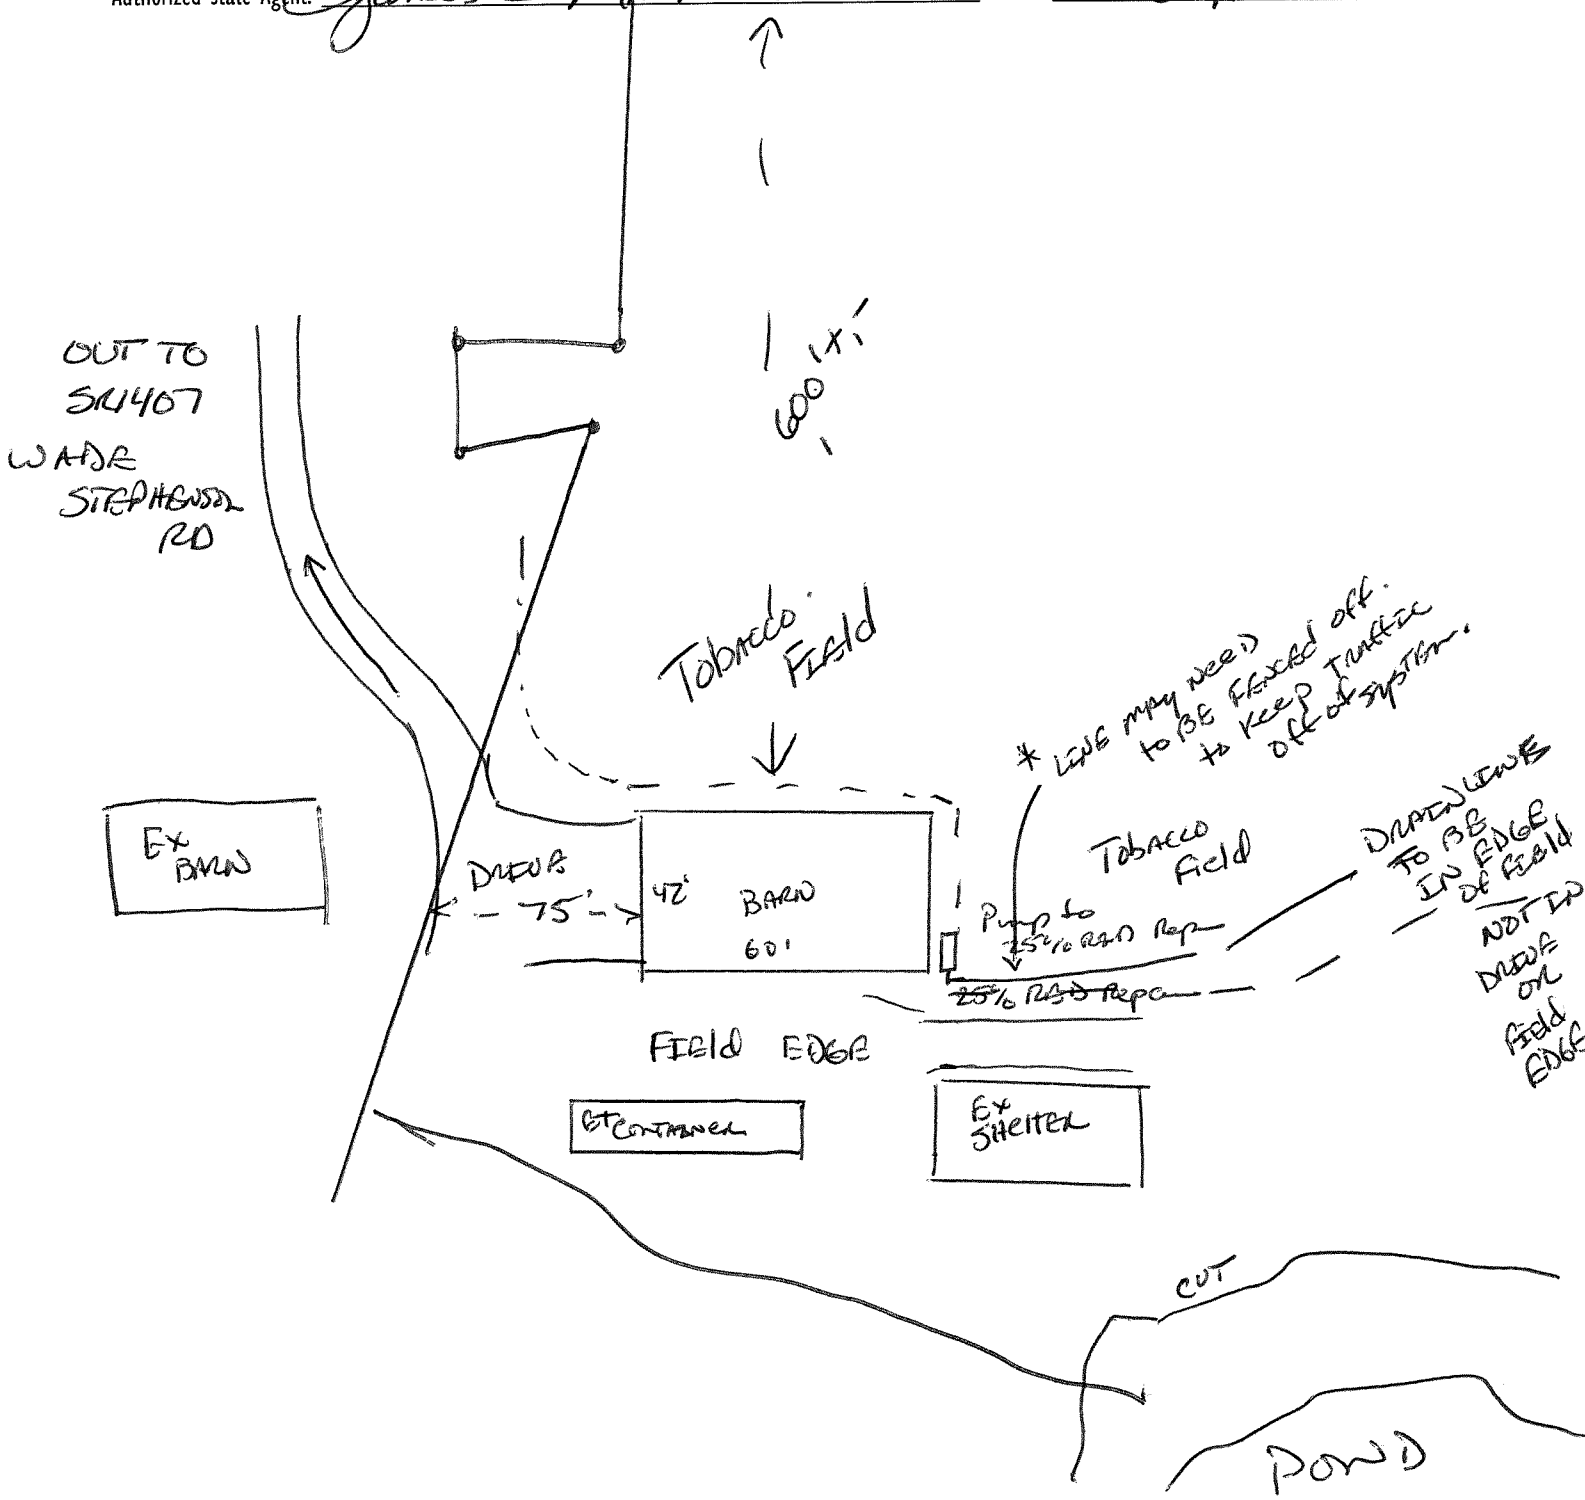 Authorized State Agent:
OUT TO
SR1407
WADE
STEPHENSON
RD
600'
Tobacco
Field
* LINE may need
to BE FENCED off.
to keep Traffic
off of system.
Ex
BARN
DRIVE
75'
42'
BARN
60'
Tobacco
Field
Pump to
25% RED Repair
25% RED Repair
DRAINLINE
TO BE
IN EDGE
OF FIELD
NOT IN
DRIVE
OR
field
EDGE
FIELD EDGE
CONTAINER
Ex
SHELTER
CUT
POND